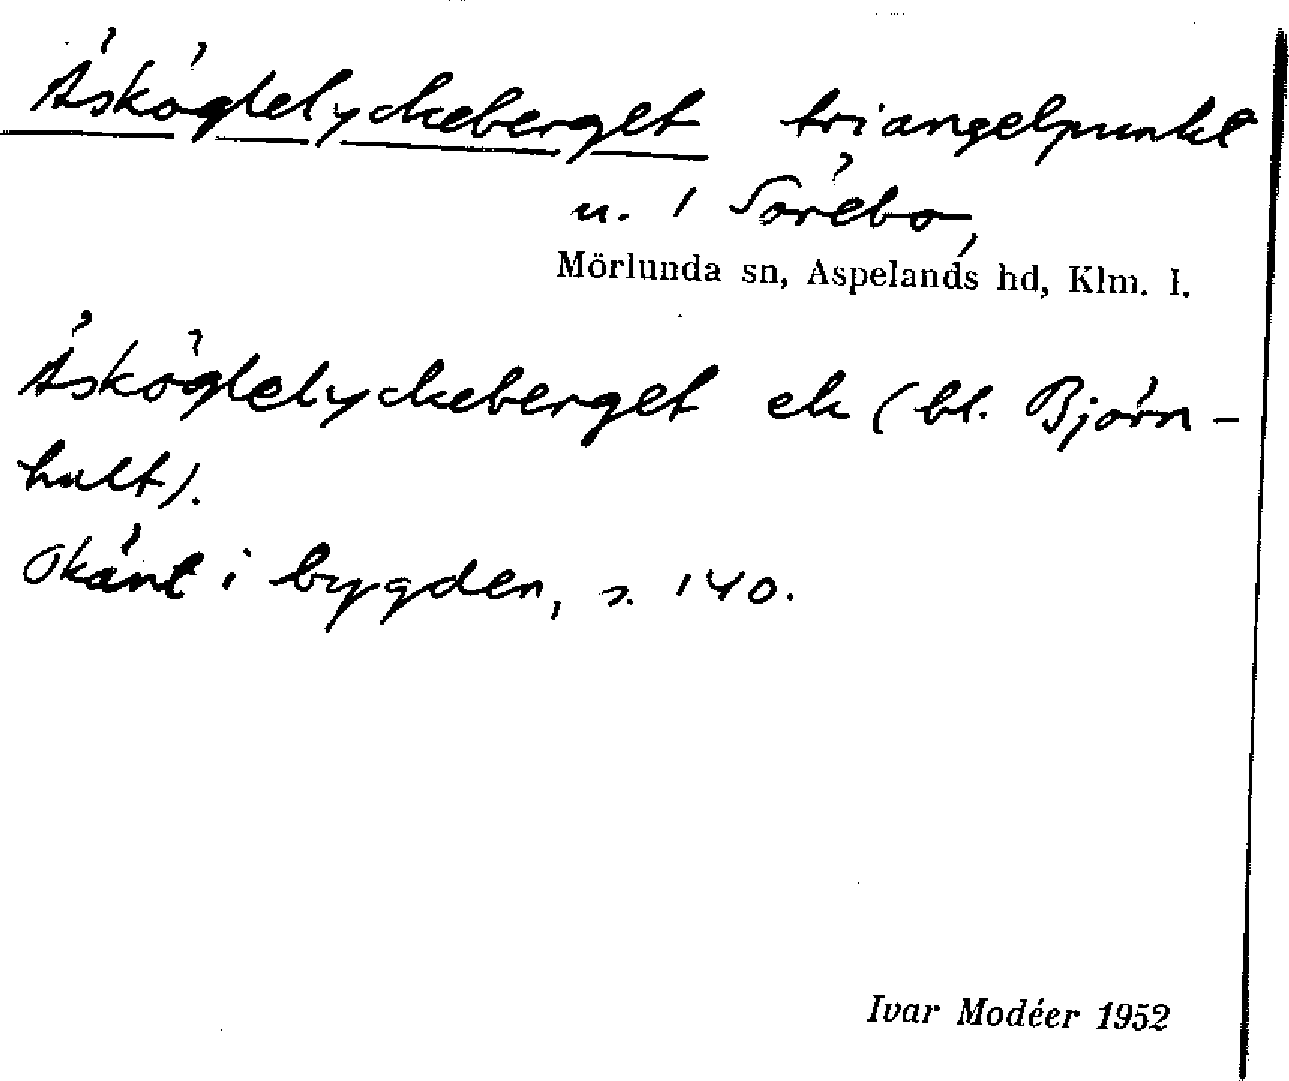 Åsköglelyckeberget triangelpunkt
u. 1 Sörebo,
Mörlunda sn, Aspelands hd, Klm. l.
Åsköglelyckeberget ek (bl. Björn-
hult).
Okänt i bygden, s. 140.
Ivar Modéer 1952